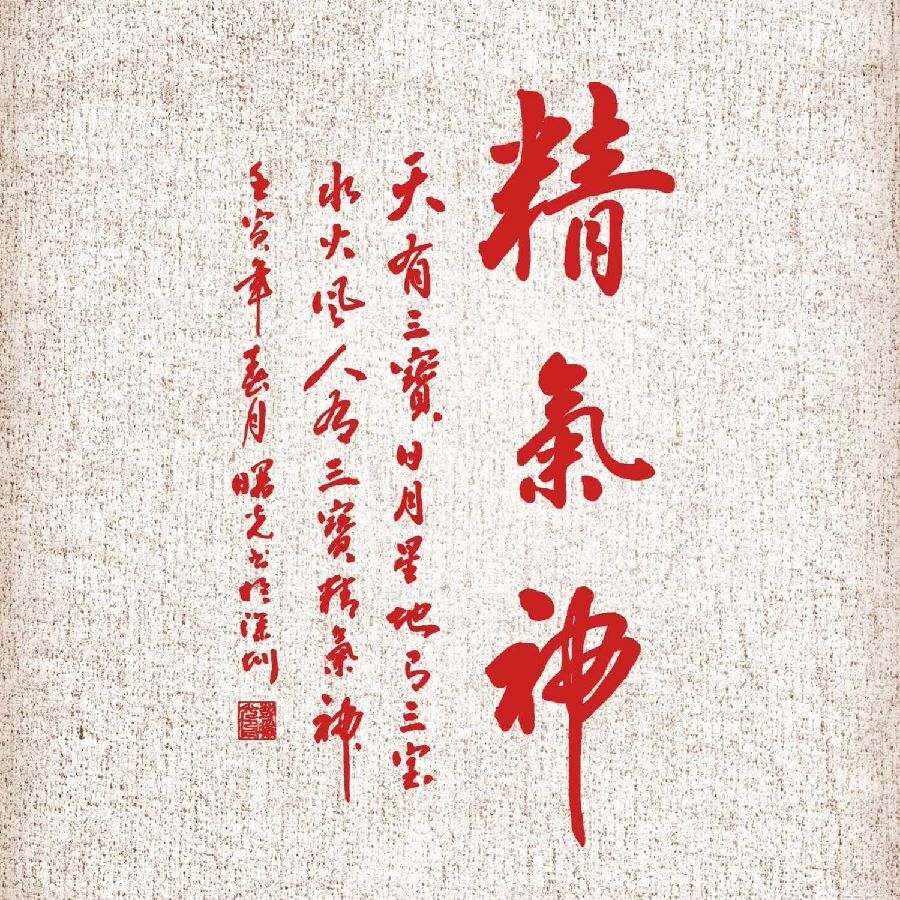 精氣神
天有三寶日月星地有三宝
水火風人有三寶精氣神
壬寅年春月曙光书於深圳